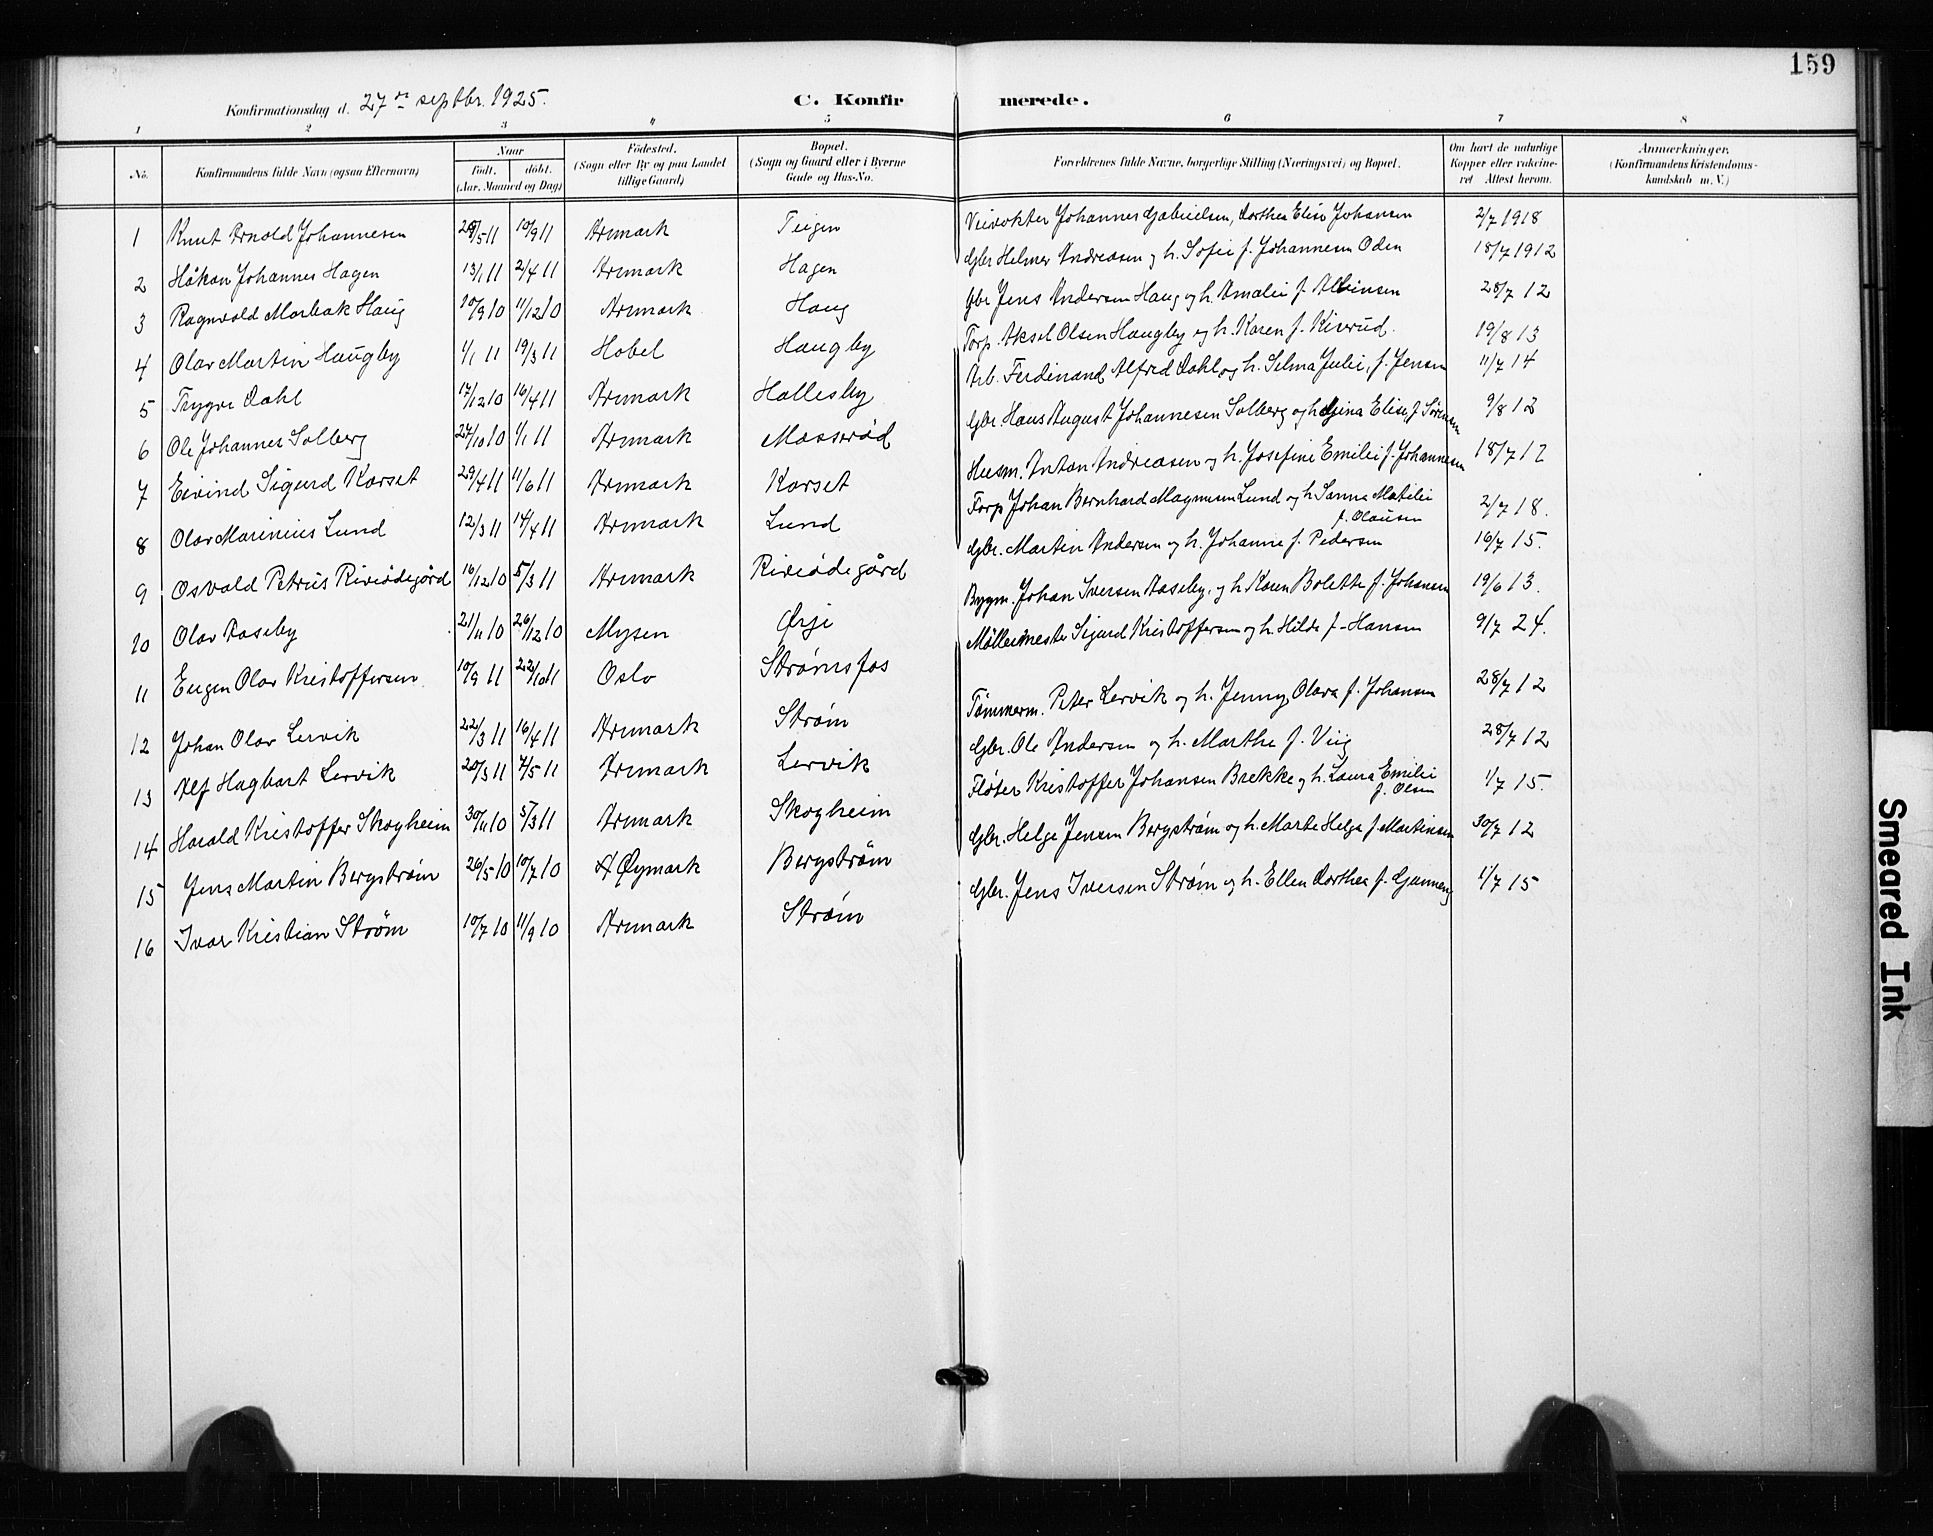 159
Konfirmationsdag d. 27de septbr. 1925. C. Konfir merede.
1 2 3 4 5 6 7 8
No. Konfirmandens fulde Navn (ogsaa Efternavn) Naar født. døbt. (Aar, Maaned og Dag) Fødested. (Sogn eller By og paa Landet tillige Gaard) Bopæl. (Sogn og Gaard eller i Byerne Gade og Hus-No. Forældrenes fulde Navne, borgerlige Stilling (Næringsvei) og Bopæl. Om havt de naturlige Kopper eller vakcineret Attest herom. Anmerkninger. (Konfirmandens Kristendomskundskab m. V.)
1 Knut Arnold Johannesen 28/5 11 10/9 11 Aremark Teigen Veivokter Johannes Gabrielsen, Dorthea Elise Johansen 2/7 1918
2 Håkon Johannes Hagen 13/1 11 2/4 11 Aremark Hagen Gbr. Helmer Andreasen og h. Sofie f. Johannesen Oden 18/7 1912
3 Ragnvald Marbak Haug 10/9 10 11/12 10 Aremark Haug Gbr. Jens Andersen Haug og h. Amalie f. Albinsen 28/7 12
4 Olav Martin Haugby 1/1 11 19/3 11 Hobøl Haugby Torp. Aksel Olsen Haugby og h. Karen f. Kiserud. 19/8 13
5 Trygve Dahl 17/12 10 16/4 11 Aremark Hallesby Arb. Ferdinand Alfred Dahl og h. Selma Julie, f. Jensen 11/7 14
6 Ole Johannes Solberg 27/10 10 1/1 11 Aremark Mosserød Gbr. Hans August Johannesen Solberg og h. Gina Elise f. Sørensen 9/8 12
7 Eivind Sigurd Korset 29/4 11 11/6 11 Aremark Korset Husm. Anton Andreasen og h. Josefine Emilie f. Johannesen 18/7 12
8 Olav Marinius Lund 12/3 11 14/4 11 Aremark Lund Torp. Johan Bernhard Magnusen Lund og h. Sanna Matilie f. Olausen 2/7 18.
9 Osvald Petrus Riviødegård 16/12 10 5/3 11 Aremark Riviødegård Gbr. Martin Andersen og h. Johanne f. Pedersen 16/7 15.
10 Olav Aaseby 21/11 10 26/12 10 Mysen Ørje Bygm. Johan Iversen Aaseby, og h. Karen Bolette f. Johansen 19/6 13.
11 Eugen Olav Kristoffersen 10/9 11 22/10 11 Oslo Strømsfos Møllermester Sigurd Kristoffersen og h. Hilda f. Hansen 9/7 24.
12 Johan Olav Lervik 22/3 11 16/4 11 Aremark Strøm Tømmerm. Peter Lervik og h. Jenny Olava f. Johansen 28/7 12
13 Alf Hagbart Lervik 20/3 11 7/5 11 Aremark Lervik Gbr. Ole Andersen og h. Marthe f. Viig 28/7 12
14 Harald Kristoffer Skogheim 30/11 10 5/3 11 Aremark Skogheim Fløter Kristoffer Johansen Brekke og h. Laura Emilie f. Olsen 1/7 15.
15 Jens Martin Bergstrøm 26/5 10 10/7 10 Øymark Bergstrøm Gbr. Helge Jensen Bergstrøm og h. Marte Helga f. Martinsen 30/7 12
16 Ivar Kristian Strøm 10/7 10 11/9 10 Aremark Strøm Gbr. Jens Iversen Strøm og h. Ellen Dorthea f. Gunneng 1/7 15
Smeared Ink